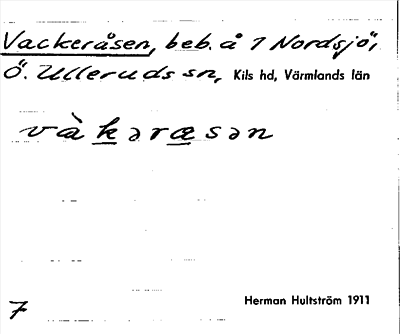 Vackeråsen, beb. å 1 Nordsjö,
Ö. Ulleruds sn, Kils hd, Värmlands län
và k ə r æ s ə n
7
Herman Hultström 1911